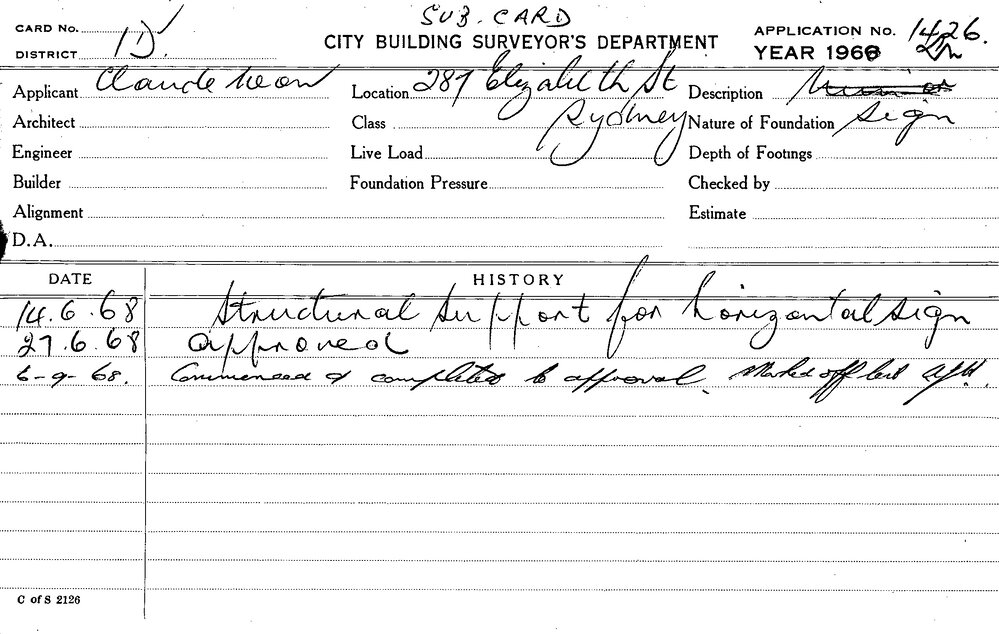 SUB. CARD
CARD No. 
DISTRICT 1D
CITY BUILDING SURVEYOR'S DEPARTMENT
APPLICATION No. 1426.
YEAR 1968
Applicant Claude Neon
Location 287 Elizabeth St
Sydney
Description
sign
Architect
Class
Nature of Foundation
Engineer
Live Load
Depth of Footings
Builder
Foundation Pressure
Checked by
Alignment
Estimate
D.A.
DATE HISTORY
14.6.68 Structural support for horizontal sign
27.6.68 approved
6-9-68. Commenced & completed to approval. Marked off
C of S 2126